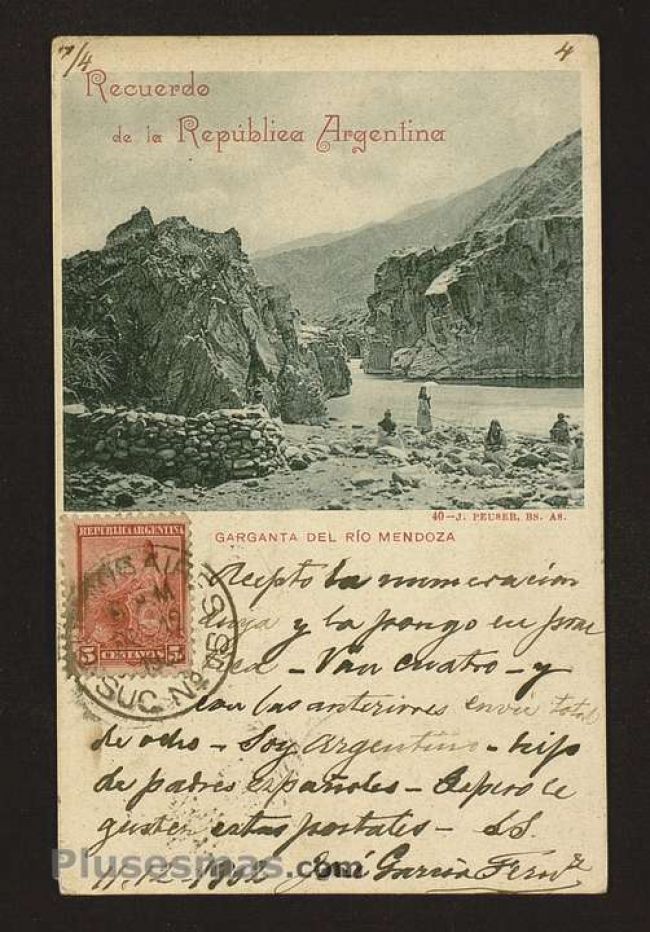 7/4
4
Recuerdo
de la República Argentina
40—J. PEUSER, BS. AS.
GARGANTA DEL RÍO MENDOZA
REPUBLICA ARGENTINA
5 CENTAVOS 5
SUC. Nº
Acepto la numeracion
suya y la pongo en prac
tica – Van cuatro – y
con las anteriores envié total
de ocho – Soy Argentino – hijo
de padres españoles – Espero le
gusten estas postales – SS.
José García Fernz
11-12-1902
Plusesmas.com